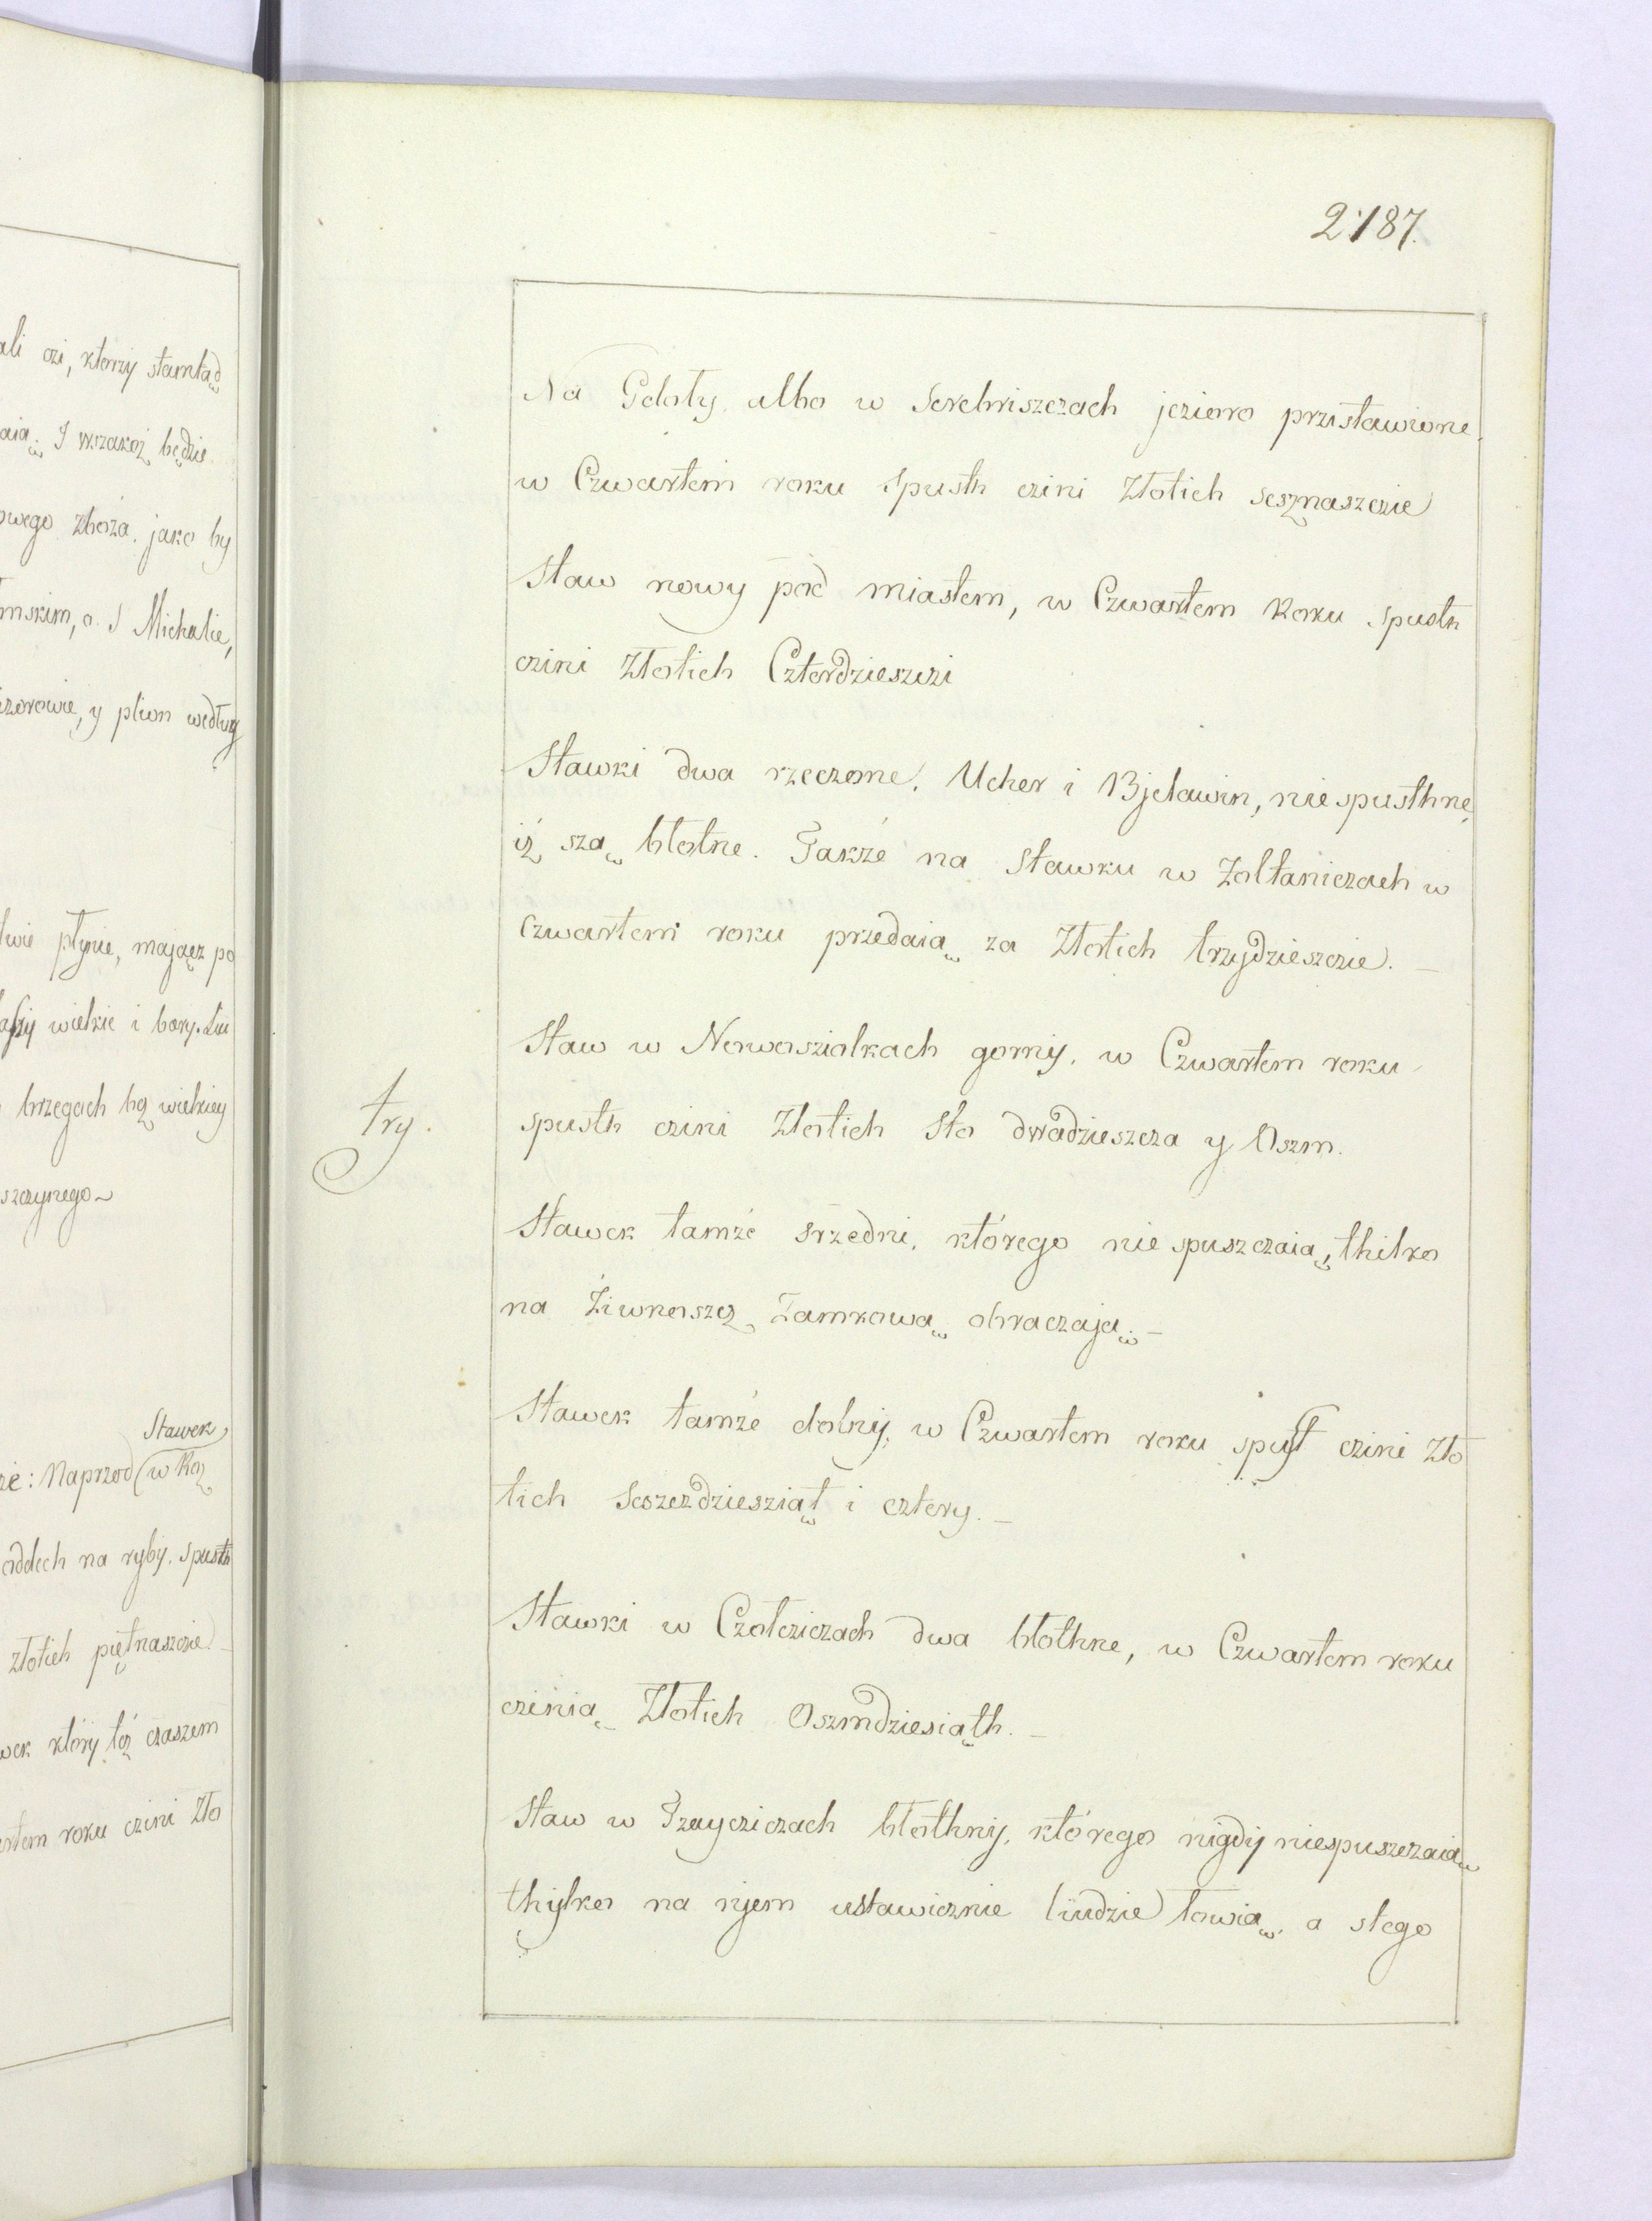 ali czi, ktorzy stamtąd
aią. I wszakoż będzie
owego zboża. jako by
mskim, o. S Michalie,
zorowie, y plion według
twie płynie, mającz po
wielkie i bory. Lu
brzegach bez wielkiey
szczynego~
Stawek
zie: Naprzod (w Koz
oddech na ryby. spusth
złotich piętnaszczie
wek który też czaszem
artem roku czini Zło
2187.
Na Gdoły albo w Serebriszczach jezioro przistawione
w Czwartem roku spusth czini Złotich sesznaszczie
Staw nowy pod miastem, w Czwartem Roku spusth
czini Złotich Czterdzieszczi
Stawki dwa rzeczone, Ucher i Bjeławin, nie spusthne,
iż szą błotne. Także na Stawku w Zołtaniczach w
Czwartem roku przedaią za Złotich trzydzieszczie. –
Staw w Nowosziolkach gorny, w Czwartem roku
try.
spusth czini Złotich sto dwadzieszcza y Oszm.
Stawek tamże srzedni, którego nie spuszczaią, thilko
na Żiwnoszcz Zamkową obraczają. –
Stawek tamże dolny, w Czwartem roku spust czini Zło
tich Seszczdziesziąt i cztery. –
Stawki w Czołcziczach dwa błothne, w Czwartem roku
czinią Złotich Oszmdziesiąth. –
Staw w Trzaycziczach błothny, którego nigdy niespuszczaią
thylko na njem ustawicznie liudzie łowią, a stego